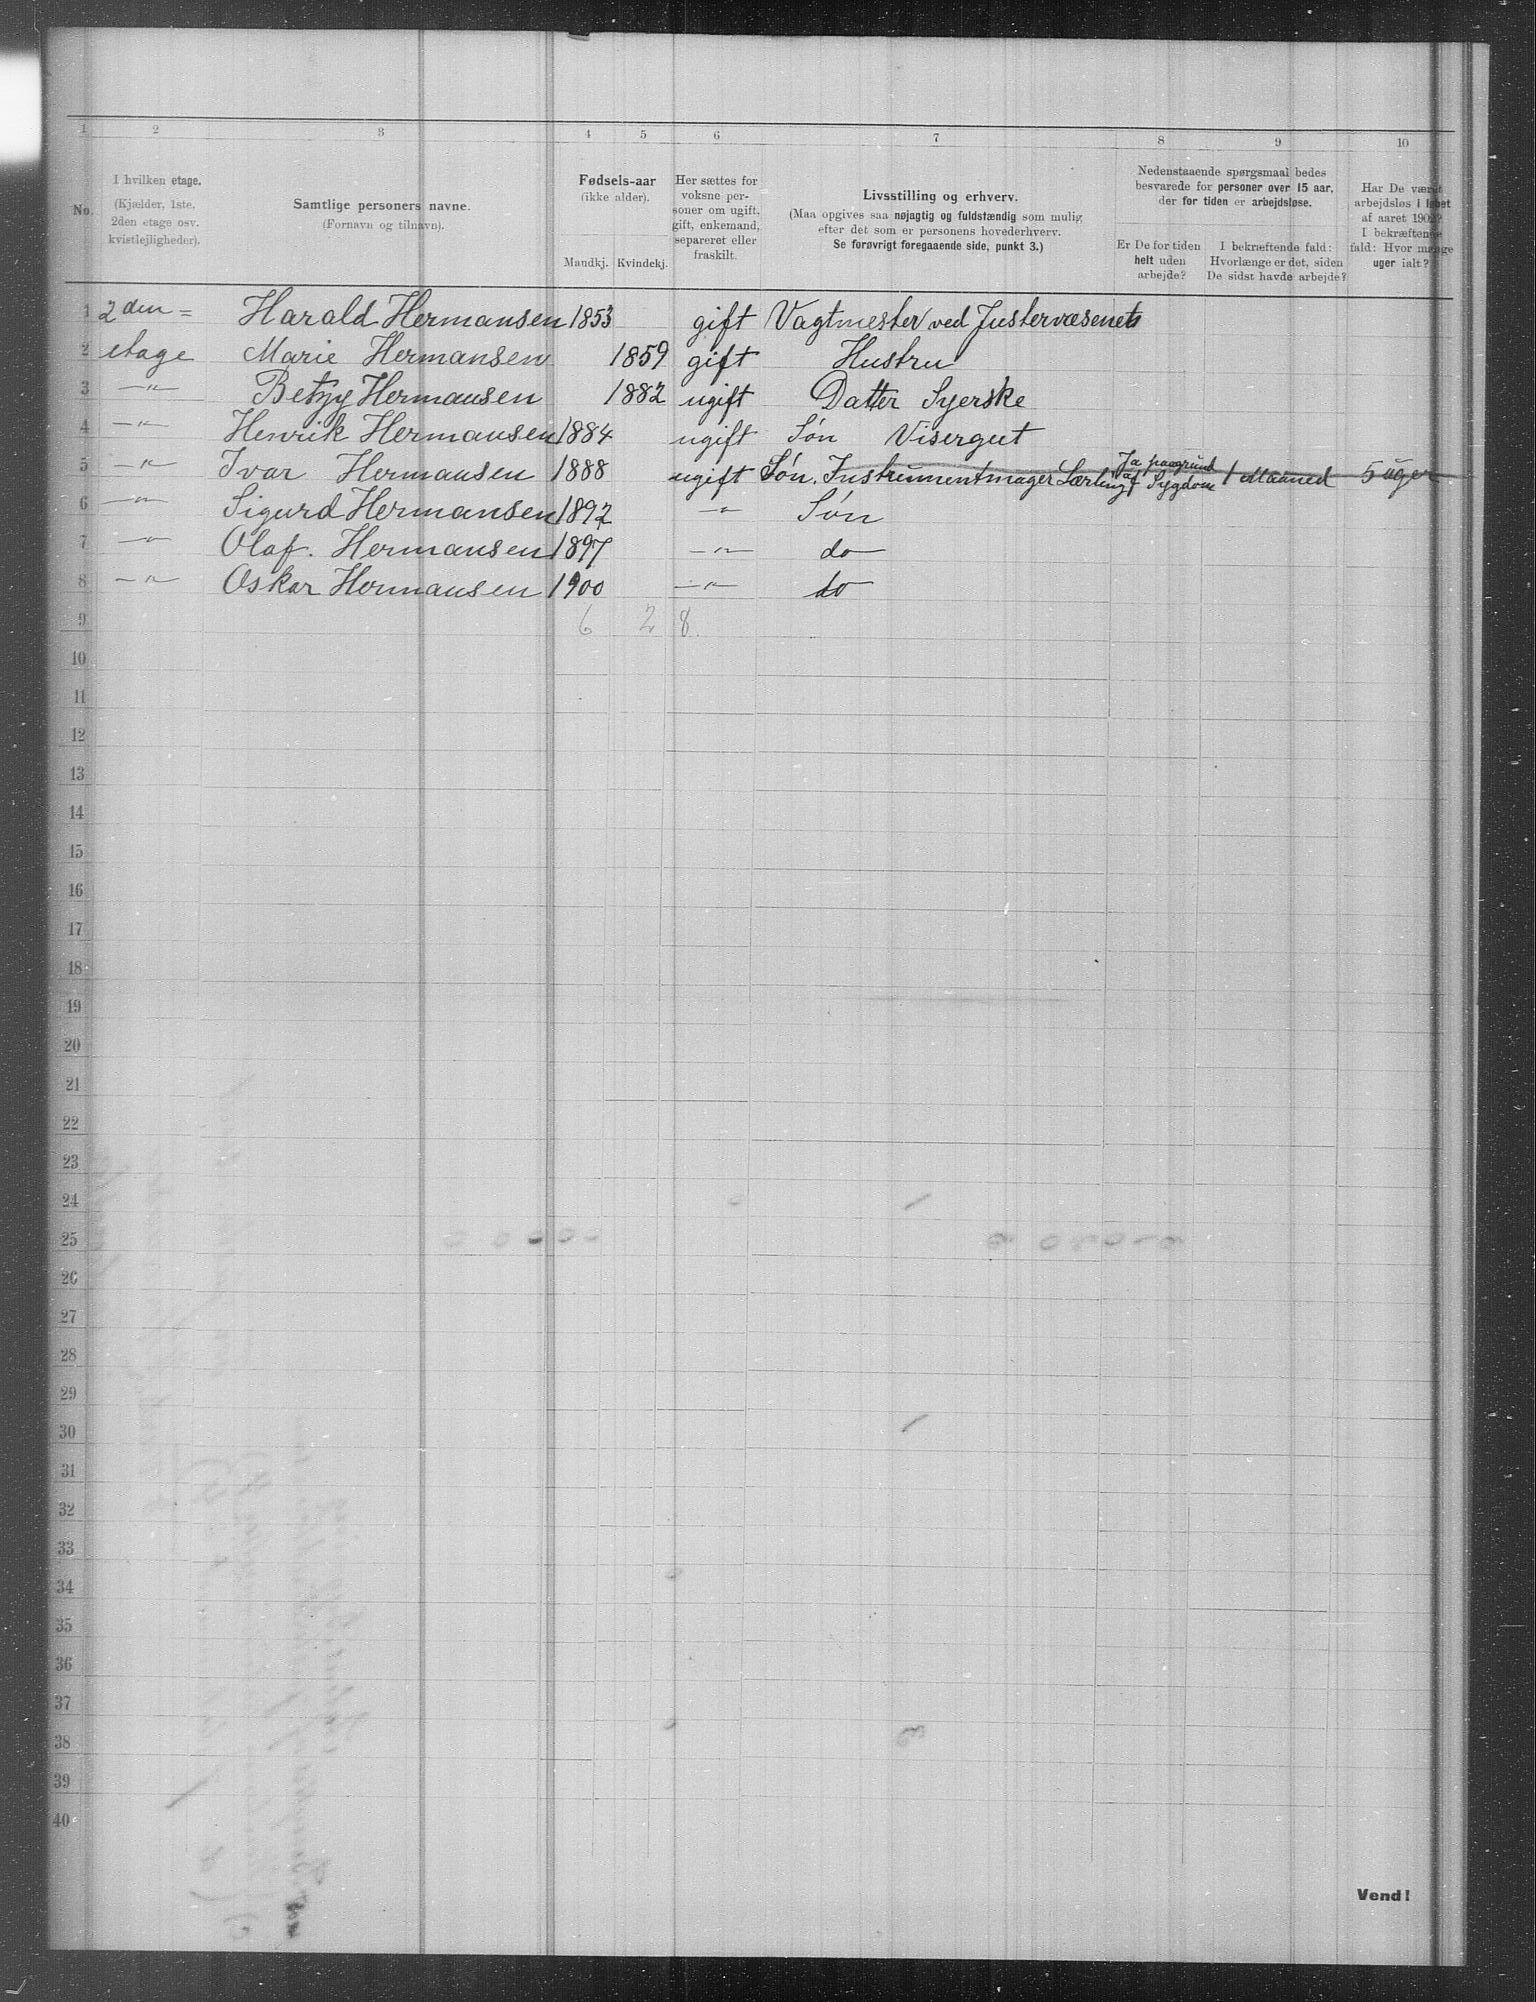 1 2 3 4 5 6 7 8 9 10
No.
I hvilken etage.
(Kjælder, 1ste,
2den etage osv.
kvistlejligheder).
Samtlige personers navne.
(Fornavn og tilnavn).
Fødsels-aar
(ikke alder).
Mandkj. Kvindekj.
Her sættes for
voksne per-
soner om ugift,
gift, enkemand,
separeret eller
fraskilt.
Livsstilling og erhverv.
(Maa opgives saa nøjagtig og fuldstændig som mulig
efter det som er personens hovederhverv.
Se forøvrigt foregaaende side, punkt 3.)
Nedenstaaende spørgsmaal bedes
besvarede for personer over 15 aar,
der for tiden er arbejdsløse.
Er De for tiden
helt uden
arbejde?
I bekræftende fald:
Hvorlænge er det, siden
De sidst havde arbejde?
Har De været
arbejdsløs i løbet
af aaret 1902?
I bekræftende
fald: Hvor mange
uger ialt?
1 2den= Harald Hermansen 1853 gift Vagtmester ved Justervæsenet
2 etage Marie Hermansen 1859 gift Hustru
3 —"— Betzy Hermansen 1882 ugift Datter Syerske
4 —"— Henrik Hermansen 1884 ugift Søn Visergut
5 —"— Ivar Hermansen 1888 ugift Søn. Instrumentmager Lærling Ja paagrund af Sygdom 1 Maaned 5 uger
6 —"— Sigurd Hermansen 1892 —"— Søn
7 —"— Olaf. Hermansen 1897 —"— do
8 —"— Oskar Hermansen 1900 —"— do
9 6 2 8.
10
11
12
13
14
15
16
17
18
19
20
21
22
23
24
25
26
27
28
29
30
31
32
33
34
35
36
37
38
39
40
Vend!